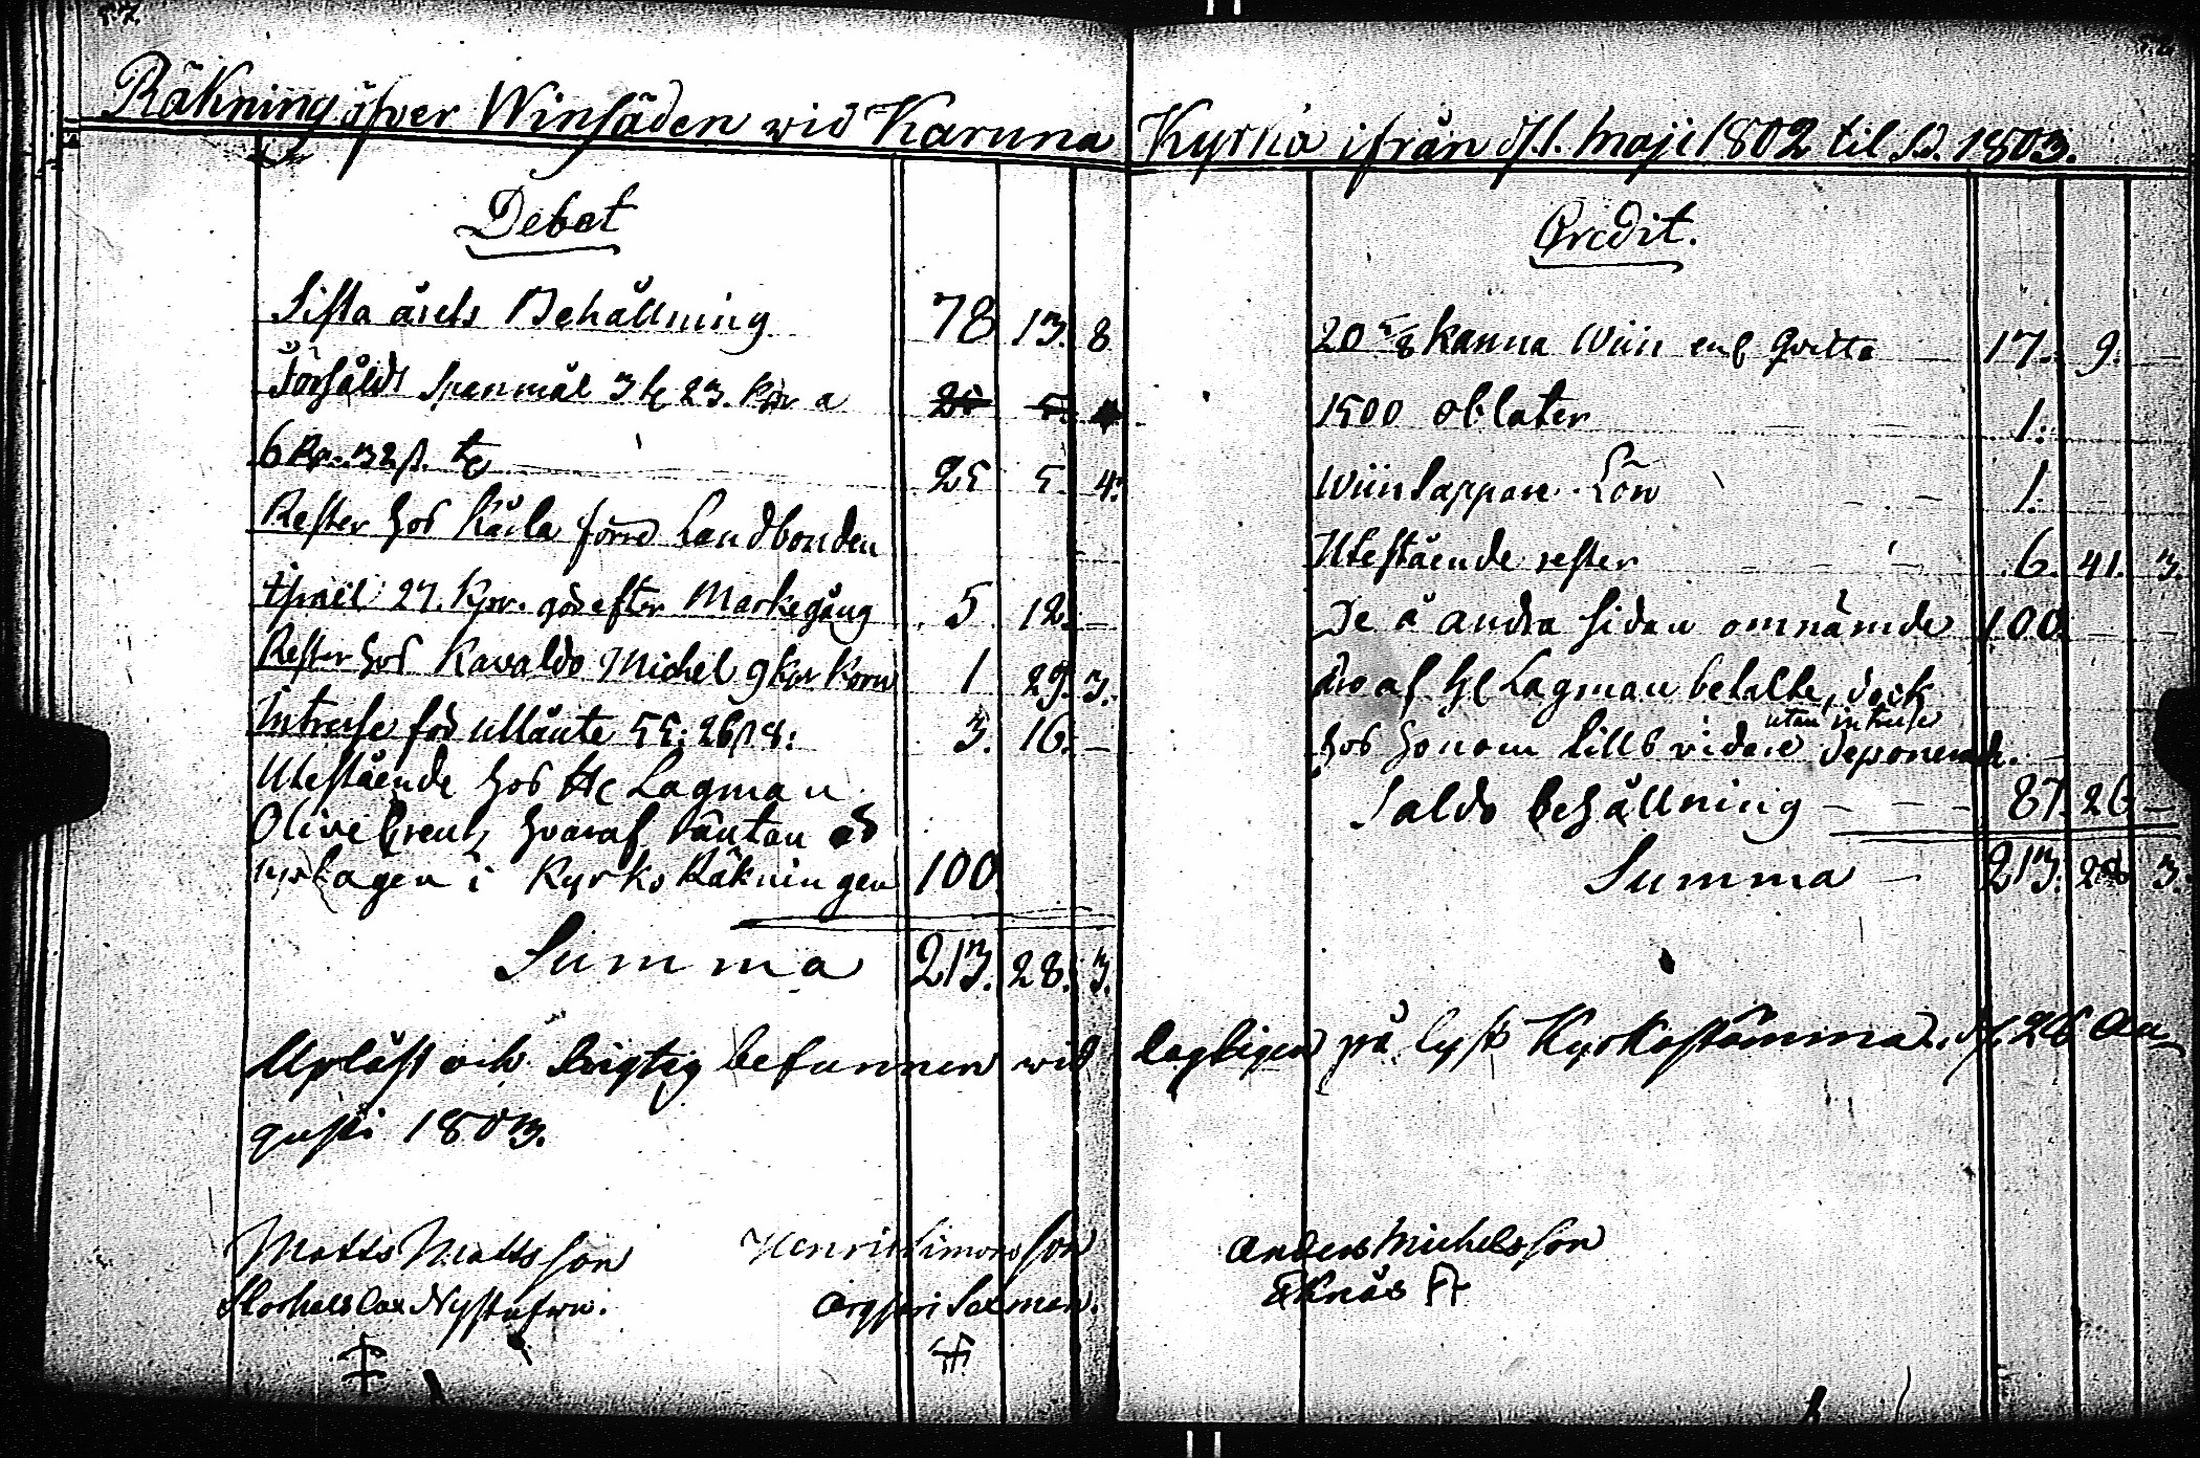 Räkning öfver Winsäden wid Karuna Kyrka ifrån d. 1. Maji 1802 til d. 1803.
Debet
Sista årets Behållning 78 13. 8
Försåldt Spanmål 3 t. 23. kpr a
6 Rd. 32 s. t. 25 5. 4.
Rester hos Kärla förre Landbonden
27. kpr. gör efter Markegång 5 12. –
Rester hos Kavaldo Michel 9 kpr Korn 1 29. 3.
Intresse för utlånte 55: 26 s 8: 3. 16. –
Utestående hos H. Lagman
Olivecreutz hvaraf räntan är
uptagen i Kyrko Räkningen 100.
Summa 213. 28. 3.
Upläst och Rigtig befunnen wid
gusti 1803.
Matts Mattsson
Nystufwu.
Henric Simonsson
Credit.
20 5/8 Kanna Wiin enl. Qvitto – 17. 9. –
1500 oblater – – 1.
Wiintappare Lön – – 1.
Utestående rester – – 6. 41. 3.
De å andra sidan omnämde 100. – –
äro af H. Lagman betalte, dock
utan intresse
hos honom tills vidare deponerade.
Saldo behållning – – – 87. 26 –
Summa – 213. 28 3.
laghigen på lyst Kyrkostämma. d. 26 Au
Anders Michelsson
Eknäs